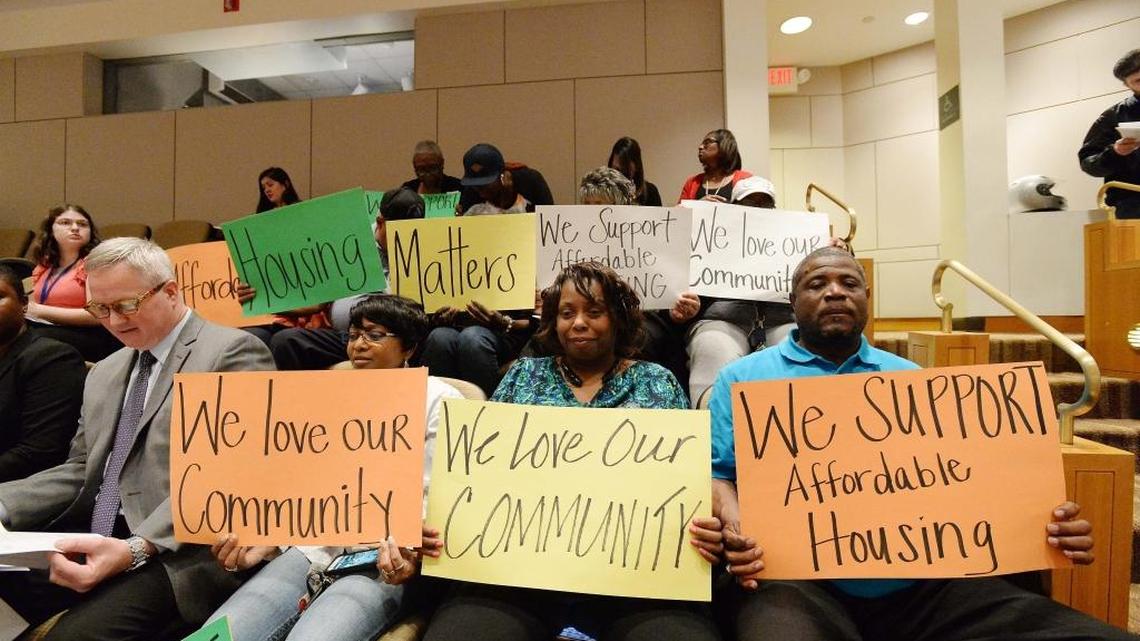 EXIT
SUPPORT
Afforda
Housing
Matters
We Support
Affordable
HOUSING
We love our
Community
We love our
Community
We Love Our
COMMUNITY
We SUPPORT
Affordable
Housing